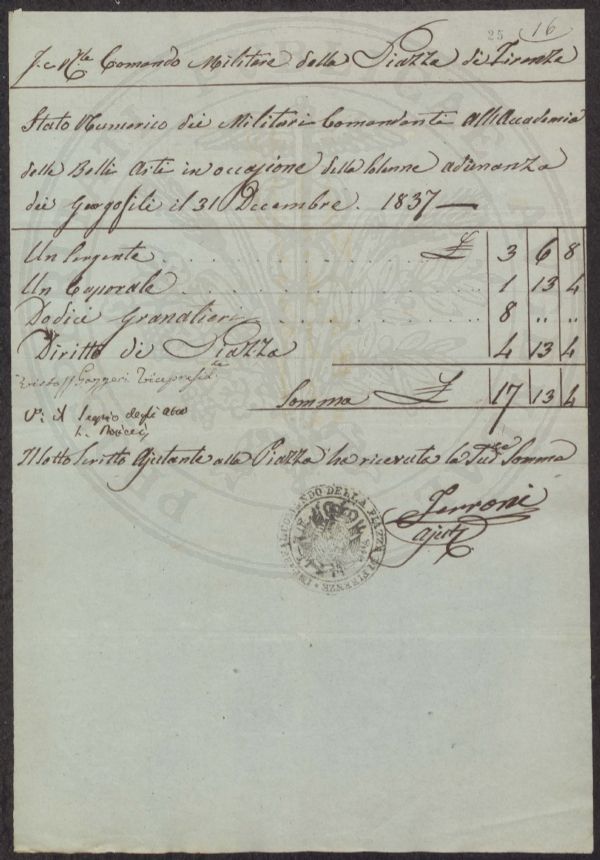 25 16
J. e R.le Comando Militare della Piazza di Firenze
Stato Numerico dei Militari Comandanti all'Accademia
delle Belle Arti in occasione della Solenne adunanza
dei Georgofili il 31 Decembre. 1837 —
Un Sergente . . . . . . . . . . £ 3 6 8
Un Caporale . . . . . . . . . . 1 13 4
Dodici Granatieri . . . . . . . . . . 8 „ „
Diritto di Piazza 4 13 4
Somma £ 17 13 4
Visto
V.o: il
degli
Il Sotto Scritto Ajutante alla Piazza ha ricevuta la Sud.a Somma
Ferroni
ajut.
COMANDO DELLA PIAZZA DI FIRENZE